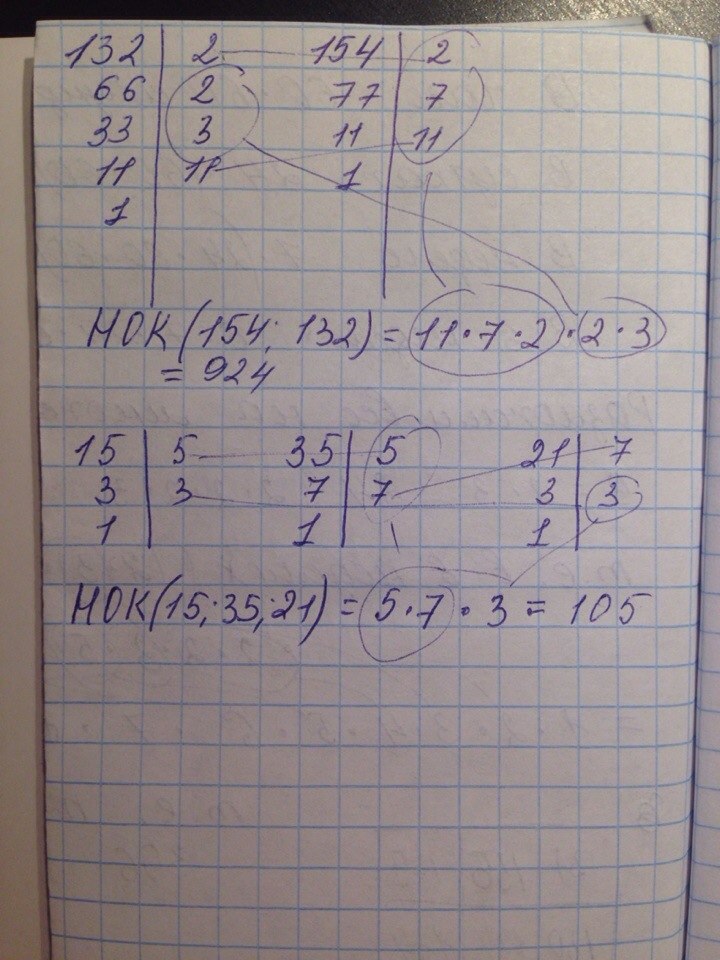 132 | 2 154 | 2
66 | 2 77 | 7
33 | 3 11 | 11
11 | 11 1
1
НОК(154; 132) = 11·7·2·2·3
= 924
15 | 5 35 | 5 21 | 7
3 | 3 7 | 7 3 | 3
1 1 1
НОК(15; 35; 21) = 5·7·3 = 105